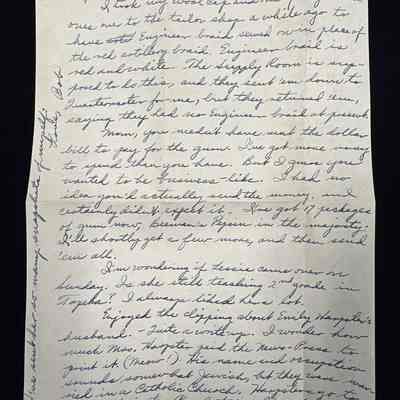 I took my wool cap and
ones over to the tailor shop a while ago to
have Engineer braid sewed on in place of
the red artillery braid. Engineer braid is
red and white. The Supply Room is sup-
posed to do this, and they sent 'em down to
Quartermaster for me, but they returned 'em,
saying they had no Engineer braid at present.
Mom, you needn't have sent the dollar
bill to pay for the gum. I've got more money
to spend than you have. But I guess you
wanted to be business-like. I had no
idea you'd actually send the money, and
certainly didn't expect it. I've got 17 packages
of gum now, Beeman's Pepsin in the majority.
I'll shortly get a few more, and then send
'em all.
I'm wondering if Jessie came over on
Sunday. Is she still teaching 2nd grade in
Topeka? I always liked her a lot.
Enjoyed the clipping about Emily
husband. - Quite a writeup. I wonder how
much Mrs. paid the News-Press to
print it. (Meow!) His name and occupation
sounds somewhat Jewish, but they were mar-
ried in a Catholic Church. to
sent her so many snapshots of myself.
Love, Bob